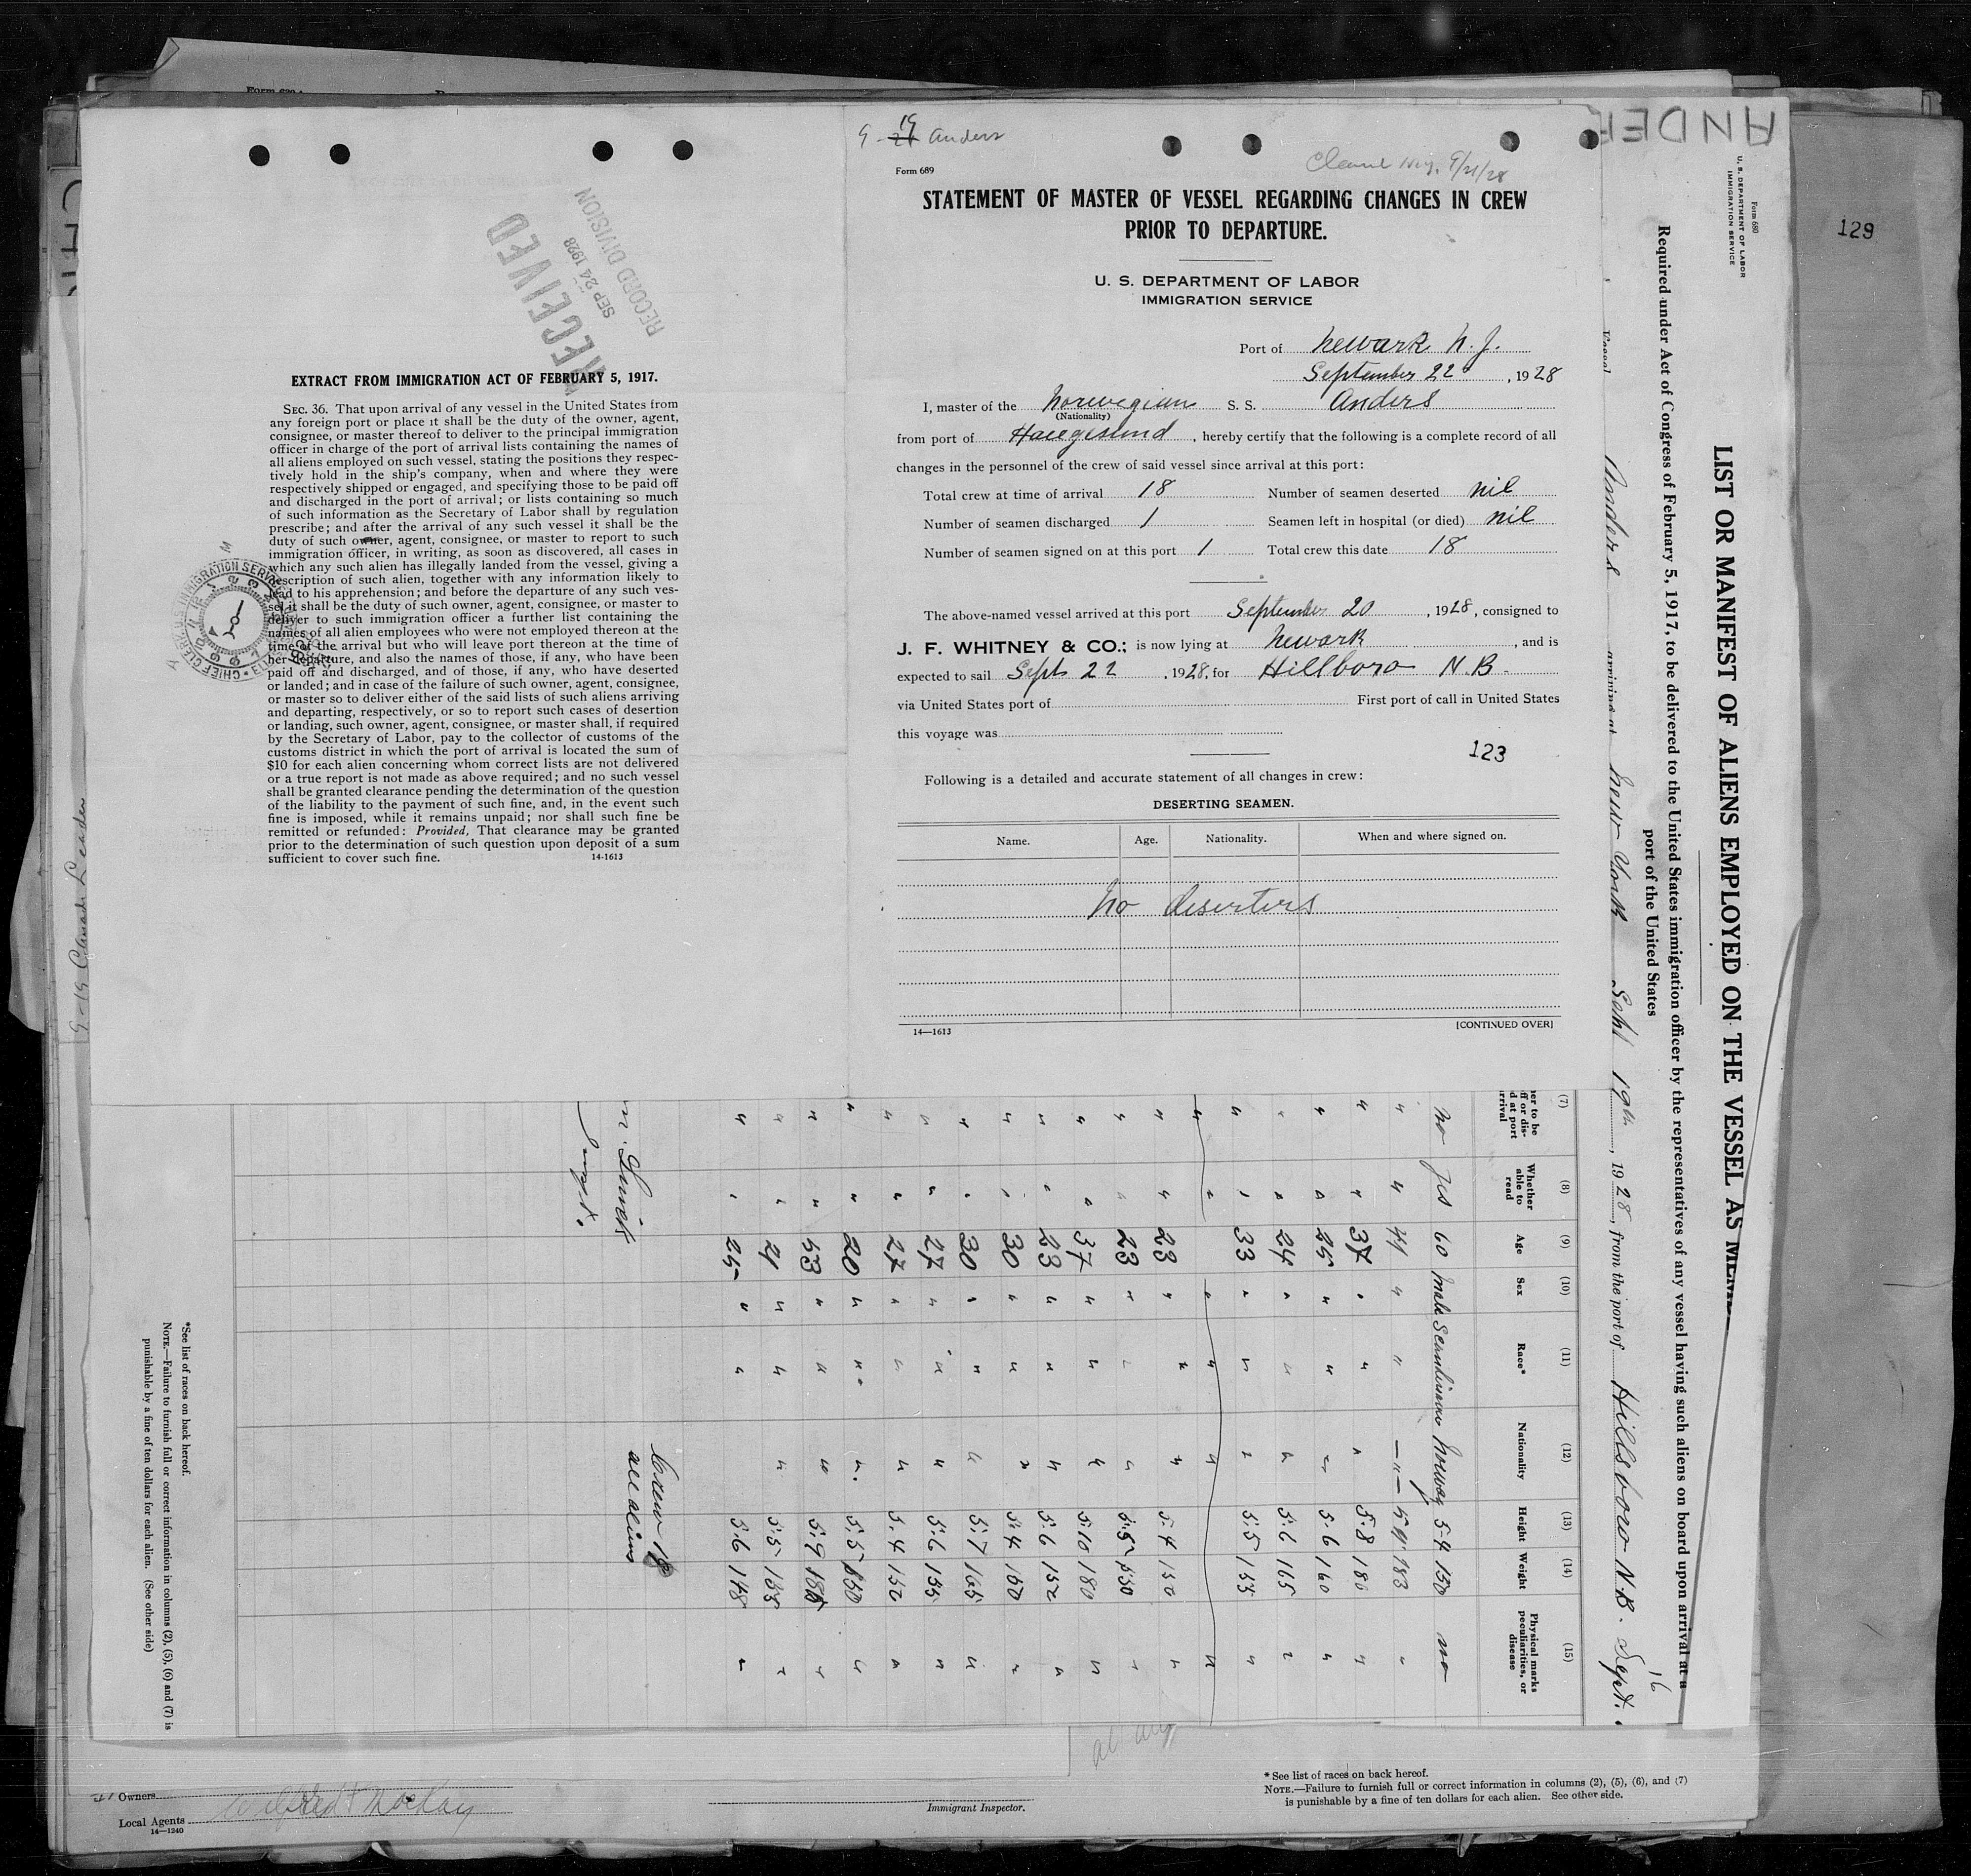 129
9-19 Anders
Form 689
Cleared 9/21/28
STATEMENT OF MASTER OF VESSEL REGARDING CHANGES IN CREW
PRIOR TO DEPARTURE.
U. S. DEPARTMENT OF LABOR
IMMIGRATION SERVICE
Port of Newark N. J.
September 22, 1928
I, master of the Norwegian S. S. Anders
(Nationality)
from port of Haugesund, hereby certify that the following is a complete record of all
changes in the personnel of the crew of said vessel since arrival at this port:
Total crew at time of arrival 18 Number of seamen deserted nil
Number of seamen discharged 1 Seamen left in hospital (or died) nil
Number of seamen signed on at this port 1 Total crew this date 18
The above-named vessel arrived at this port September 20, 1928, consigned to
J. F. WHITNEY & CO.; is now lying at Newark, and is
expected to sail Sept 22, 1928, for Hillboro N.B.
via United States port of First port of call in United States
this voyage was
123
Following is a detailed and accurate statement of all changes in crew:
DESERTING SEAMEN.
Name. Age. Nationality. When and where signed on.
No deserters
14—1613 [CONTINUED OVER]
RECEIVED
SEP 24 1928
RECORD DIVISION
EXTRACT FROM IMMIGRATION ACT OF FEBRUARY 5, 1917.
SEC. 36. That upon arrival of any vessel in the United States from
any foreign port or place it shall be the duty of the owner, agent,
consignee, or master thereof to deliver to the principal immigration
officer in charge of the port of arrival lists containing the names of
all aliens employed on such vessel, stating the positions they respec-
tively hold in the ship's company, when and where they were
respectively shipped or engaged, and specifying those to be paid off
and discharged in the port of arrival; or lists containing so much
of such information as the Secretary of Labor shall by regulation
prescribe; and after the arrival of any such vessel it shall be the
duty of such owner, agent, consignee, or master to report to such
immigration officer, in writing, as soon as discovered, all cases in
which any such alien has illegally landed from the vessel, giving a
description of such alien, together with any information likely to
lead to his apprehension; and before the departure of any such ves-
sel it shall be the duty of such owner, agent, consignee, or master to
deliver to such immigration officer a further list containing the
names of all alien employees who were not employed thereon at the
time of the arrival but who will leave port thereon at the time of
her departure, and also the names of those, if any, who have been
paid off and discharged, and of those, if any, who have deserted
or landed; and in case of the failure of such owner, agent, consignee,
or master so to deliver either of the said lists of such aliens arriving
and departing, respectively, or so to report such cases of desertion
or landing, such owner, agent, consignee, or master shall, if required
by the Secretary of Labor, pay to the collector of customs of the
customs district in which the port of arrival is located the sum of
$10 for each alien concerning whom correct lists are not delivered
or a true report is not made as above required; and no such vessel
shall be granted clearance pending the determination of the question
of the liability to the payment of such fine, and, in the event such
fine is imposed, while it remains unpaid; nor shall such fine be
remitted or refunded: Provided, That clearance may be granted
prior to the determination of such question upon deposit of a sum
sufficient to cover such fine. 14-1613
CHIEF CLERK U.S. IMMIGRATION SERVICE
ANDER
Form 680
U. S. DEPARTMENT OF LABOR
IMMIGRATION SERVICE
LIST OR MANIFEST OF ALIENS EMPLOYED ON THE VESSEL AS MEM
Required under Act of Congress of February 5, 1917, to be delivered to the United States immigration officer by the representatives of any vessel having such aliens on board upon arrival at a
port of the United States
Vessel Anders arriving at New York Sept 19th, 1928, from the port of Hillsboro N.B. Sept. 16
(7) (8) (9) (10) (11) (12) (13) (14) (15)
Whether able to read Age Sex Race* Nationality Height Weight Physical marks peculiarities, or disease
no yes 60 male Scandinavian Norway 5-4 150 no
" " 41 " " — " — 183 "
" " 37 " " " 5.8 180 "
" " 25 " " " 5.6 160 "
" " 24 " " " 5.6 165 "
" " 33 " " " 5.5 155 "
" " 23 " " " 5.4 150 "
" " 23 " " " 5.5 130 "
" " 37 " " " 5.10 180 "
" " 23 " " " 5.6 152 "
" " 30 " " " 5.4 160 "
" " 30 " " " 5.7 165 "
" " 27 " " " 5.6 155 "
" " 27 " " " 5.4 150 "
" " 20 " " " 5.5 150 "
" " 53 " " " 5.9 "
" " 21 " " " 5.5 "
" " 25 " " 5.6 148 "
Crew 18
all aliens
*See list of races on back hereof.
NOTE.—Failure to furnish full or correct information in columns (2), (5), (6) and (7) is
punishable by a fine of ten dollars for each alien. (See other side)
Owners
Local Agents
14—1240
Immigrant Inspector.
* See list of races on back hereof.
NOTE.—Failure to furnish full or correct information in columns (2), (5), (6), and (7)
is punishable by a fine of ten dollars for each alien. See other side.